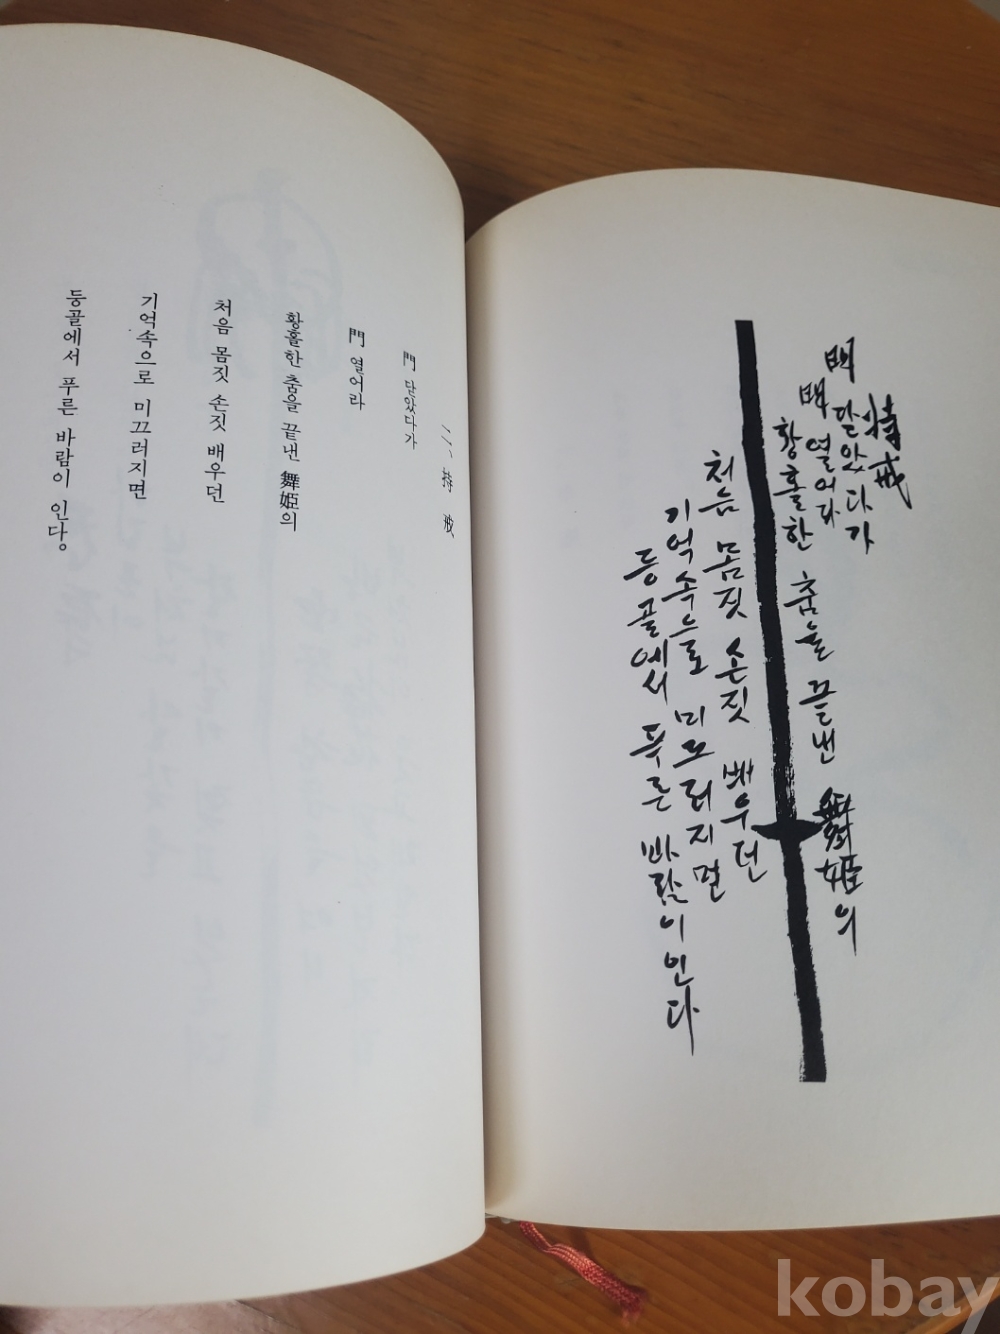 二、持戒
門 닫았다가
門 열어라
황홀한 춤을 끝낸 舞姬의
처음 몸짓 손짓 배우던
기억속으로 미끄러지면
등골에서 푸른 바람이 인다。
持戒
門 닫았다가
門 열어라
황홀한 춤을 끝낸 舞姬의
처음 몸짓 손짓 배우던
기억속으로 미끄러지면
등골에서 푸른 바람이 인다
kobay